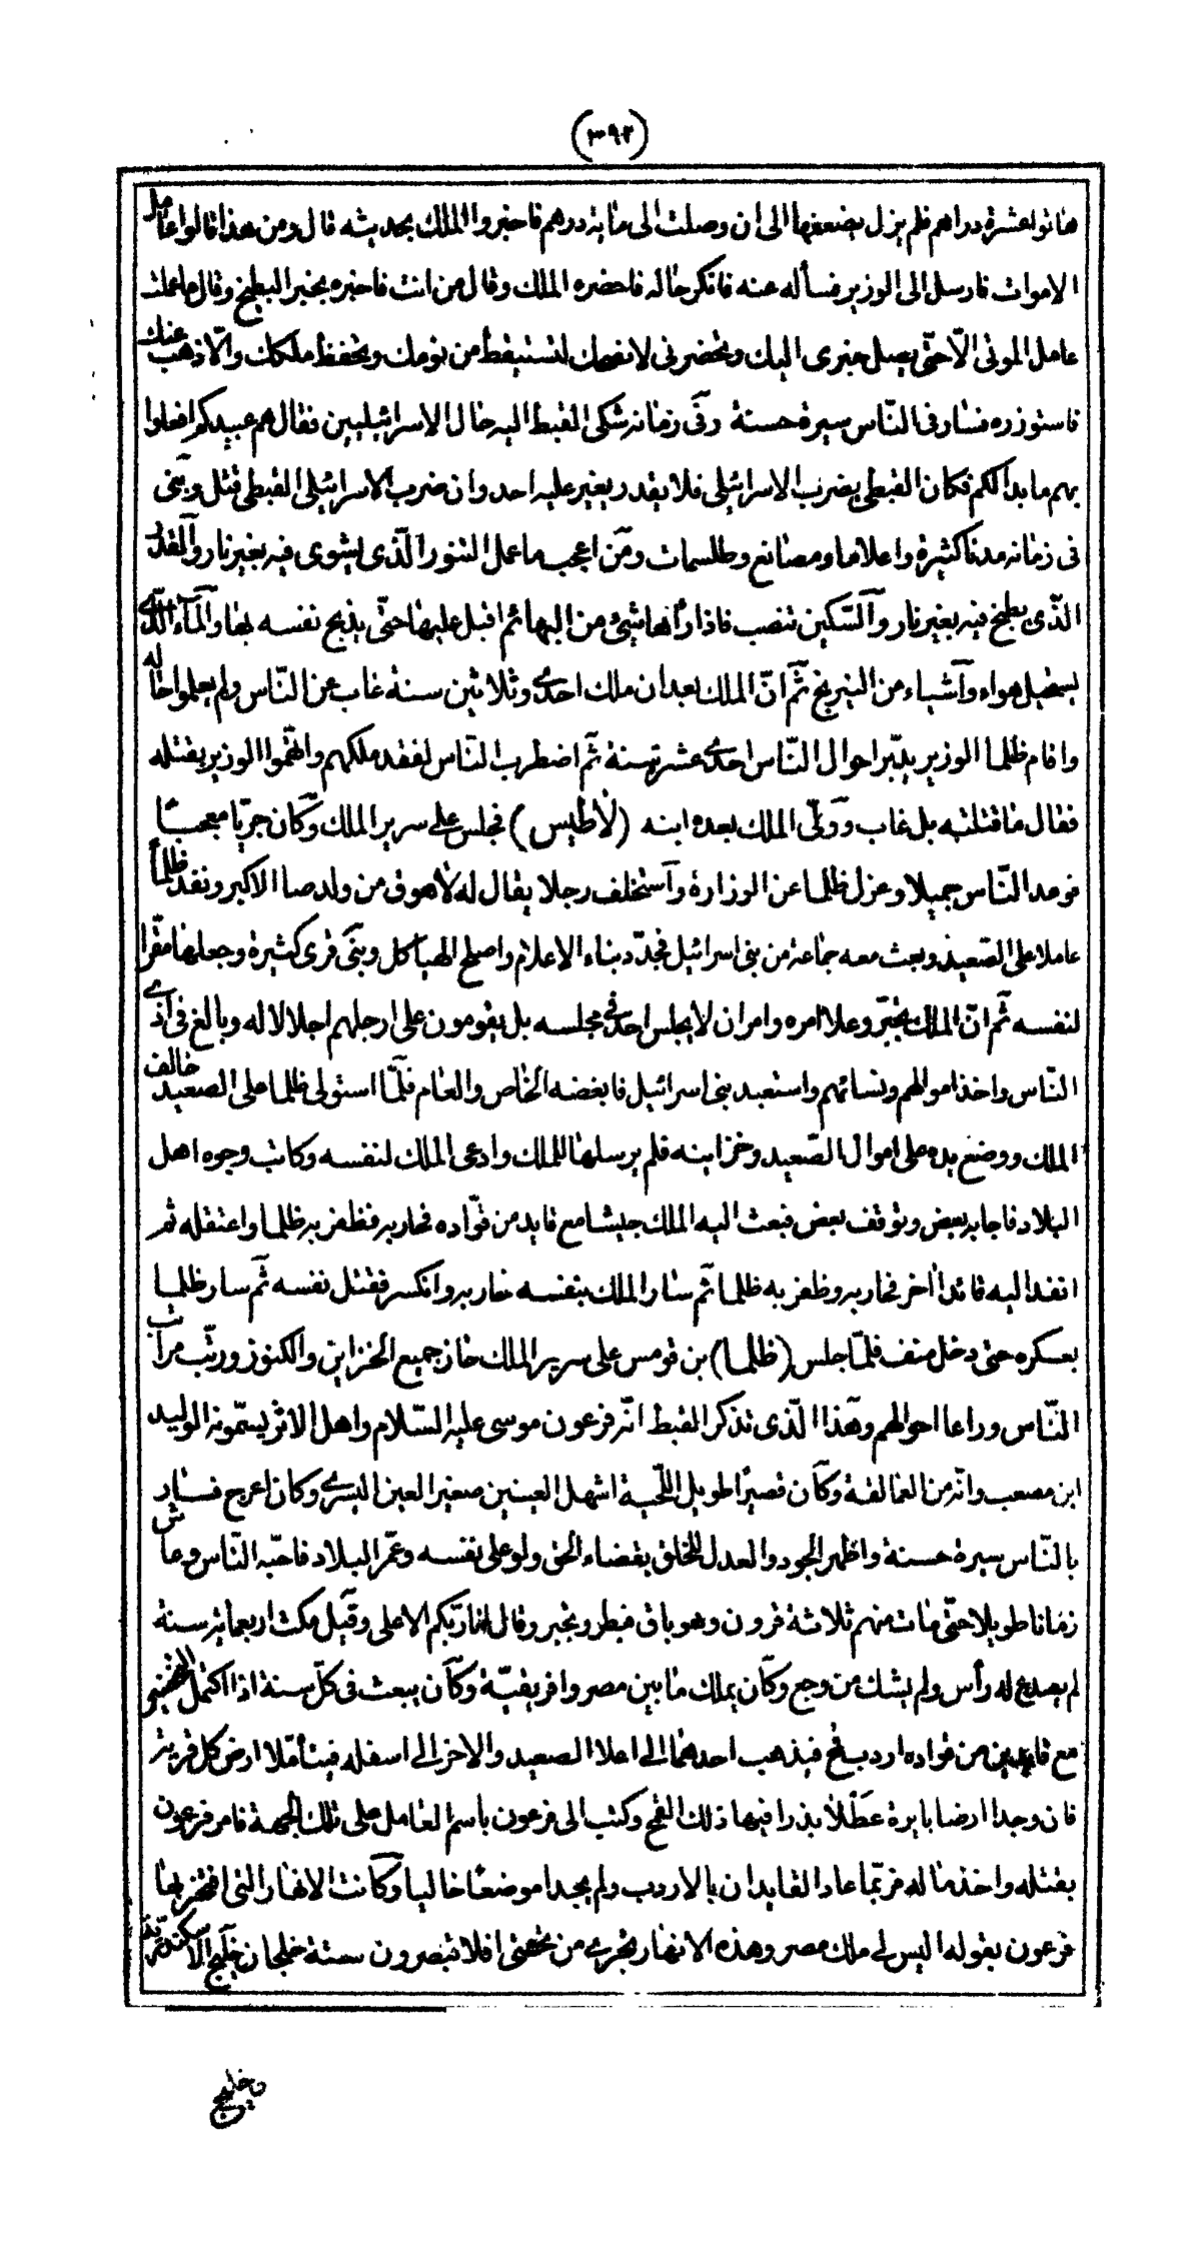 (٣٩٢)
هاتوا عشرة دراهم فلم يزل يضعفها الى ان وصلت الى مائة درهم فاخبروا الملك بحديثه قال ومن هذا قالوا عامل
الاموات فارسل الى الوزير فسأله عنه فانكر حاله فاحضره الملك وقال من انت فاخبره بخبر البطيخ وقال ما عملت
عامل الموتى الّا حتّى يصل خبرى اليك وتحضرنى لانصحك لتستيقظ من نومك وتحفظ ملكك والّا ذهب عنك
فاستوزره فسار فى النّاس سيرة حسنة وفى زمانه شكى القبط اليه حال الاسرائيليين فقال هم عبيدكم افعلوا
بهم ما بدا لكم فكان القبطى يضرب الاسرائيلى فلا يقدر يغير عليه احد وان ضرب الاسرائيلى القبطى قتل وبنى
فى زمانه مدنا كثيرة واعلاما ومصانع وطلسمات ومن اعجب ما عمل التنور الّذى يشوى فيه بغير نار والقدر
الّذى يطبخ فيه بغير نار والسّكين تنصب فاذا رأها شىء من البهائم اقبل عليها حتّى يذبح نفسه بها والمآء الّذى
يستحيل هواء واشياء من النيرنج ثمّ انّ الملك بعد ان ملك احدى وثلاثين سنة غاب عن النّاس ولم يعلموا حاله
واقام ظلما الوزير يدبّر احوال النّاس احدى عشرة سنة ثم اضطرب النّاس لفقد ملكهم واتّهموا الوزير بقتله
فقال ما قتلته بل غاب وولّى الملك بعده ابنه (لاطيس) فجلس على سرير الملك وكان جريّا معجبًا
فوعد النّاس جميلا وعزل ظلما عن الوزارة واستخلف رجلا يقال له لاهوق من ولد صا الاكبر ونفذ ظلما
عاملا على الصّعيد وبعث معه جماعة من بنى اسرائيل فجدّد بناء الاعلام واصلح الهياكل وبنى قرى كثيرة وجعلها مقرا
لنفسه ثم انّ الملك تجبّر وعلا امره وامر ان لا يجلس احد فى مجلسه بل يقومون على ارجلهم اجلالا له وبالغ فى اذى
النّاس واخذ اموالهم ونسائهم واستعبد بنى اسرائيل فابغضه الخاص والعام فلمّا استولى ظلما على الصعيد خالف
الملك ووضع يده على اموال الصّعيد وخزاينه فلم يرسلها للملك وادعى الملك لنفسه وكاتب وجوه اهل
البلاد فاجابه بعض وتوقف بعض فبعث اليه الملك جيشا مع قايد من قوّاده فحاربه فظفر به ظلما واعتقله ثم
انفذ اليه قائدا اخر فحاربه وظفر به ظلما ثم سار الملك بنفسه فحاربه وانكسر فقتل نفسه ثم سار ظلما
بعسكره حتى دخل منف فلمّا جلس (ظلما) بن قومس على سرير الملك حاز جميع الخزاين والكنوز ورتّب مراتب
النّاس وراعا احوالهم وهذا الّذى تذكر القبط انّه فرعون موسى عليه السّلام واهل الاثر يسمّونه الوليد
ابن مصعب وانّه من العمالقة وكان قصيرا طويل اللّحية اشهل العينين صغير العين اليسرى وكان اعرج فسار
بالنّاس سيرة حسنة واظهر الجود والعدل للخلق بقضاء الحق ولو على نفسه وعمّر البلاد فاحبّه النّاس وعاش
زمانا طويلا حتّى مات منهم ثلاثة قرون وهو باق فبطر وتجبر وقال انا ربّكم الاعلى وقيل مكث اربعمائة سنة
لم يصدع له رأس ولم يشك من وجع وكان يملك ما بين مصر وافريقيّة وكان يبعث فى كلّ سنة اذا اكتمل التخضير
مع قايدين من قواده اردب قمح فيذهب احدهما الى اعلا الصعيد والاخر الى اسفله فيتأمّلا ارض كل قرية
فان وجدا ارضا بايرة عطّلا بذرا فيها ذلك القمح وكتب الى فرعون باسم العامل على تلك الجهة فامر فرعون
بقتله واخذ ماله فربّما عاد القايدان بالاردب ولم يجدا موضعًا خاليا وكانت الانهار التى افتخر بها
فرعون بقوله اليس لى ملك مصر وهذه الانهار تجرى من تحتى افلا تبصرون ستة خلجان خليج الاسكندرية
وخليج